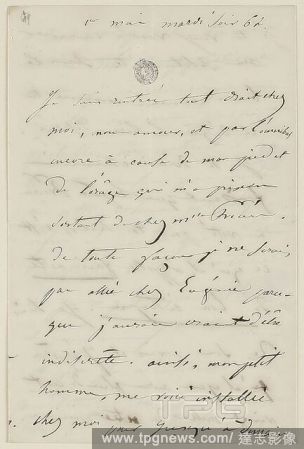 1er mai mardi soir 62
Je suis rentrée tout droit chez
moi, mon amour, et par l'omnibus
encore à cause de mon pied et
de l'orage qui m'a prise en
sortant de chez mme
de toute façon je ne serais
pas allée chez Eugénie parce
que j'aurais craint d'être
indiscrète. ainsi, mon petit
homme, me voici installée
chez moi jusqu'à
TPG
www.tpgnews.com/達志影像